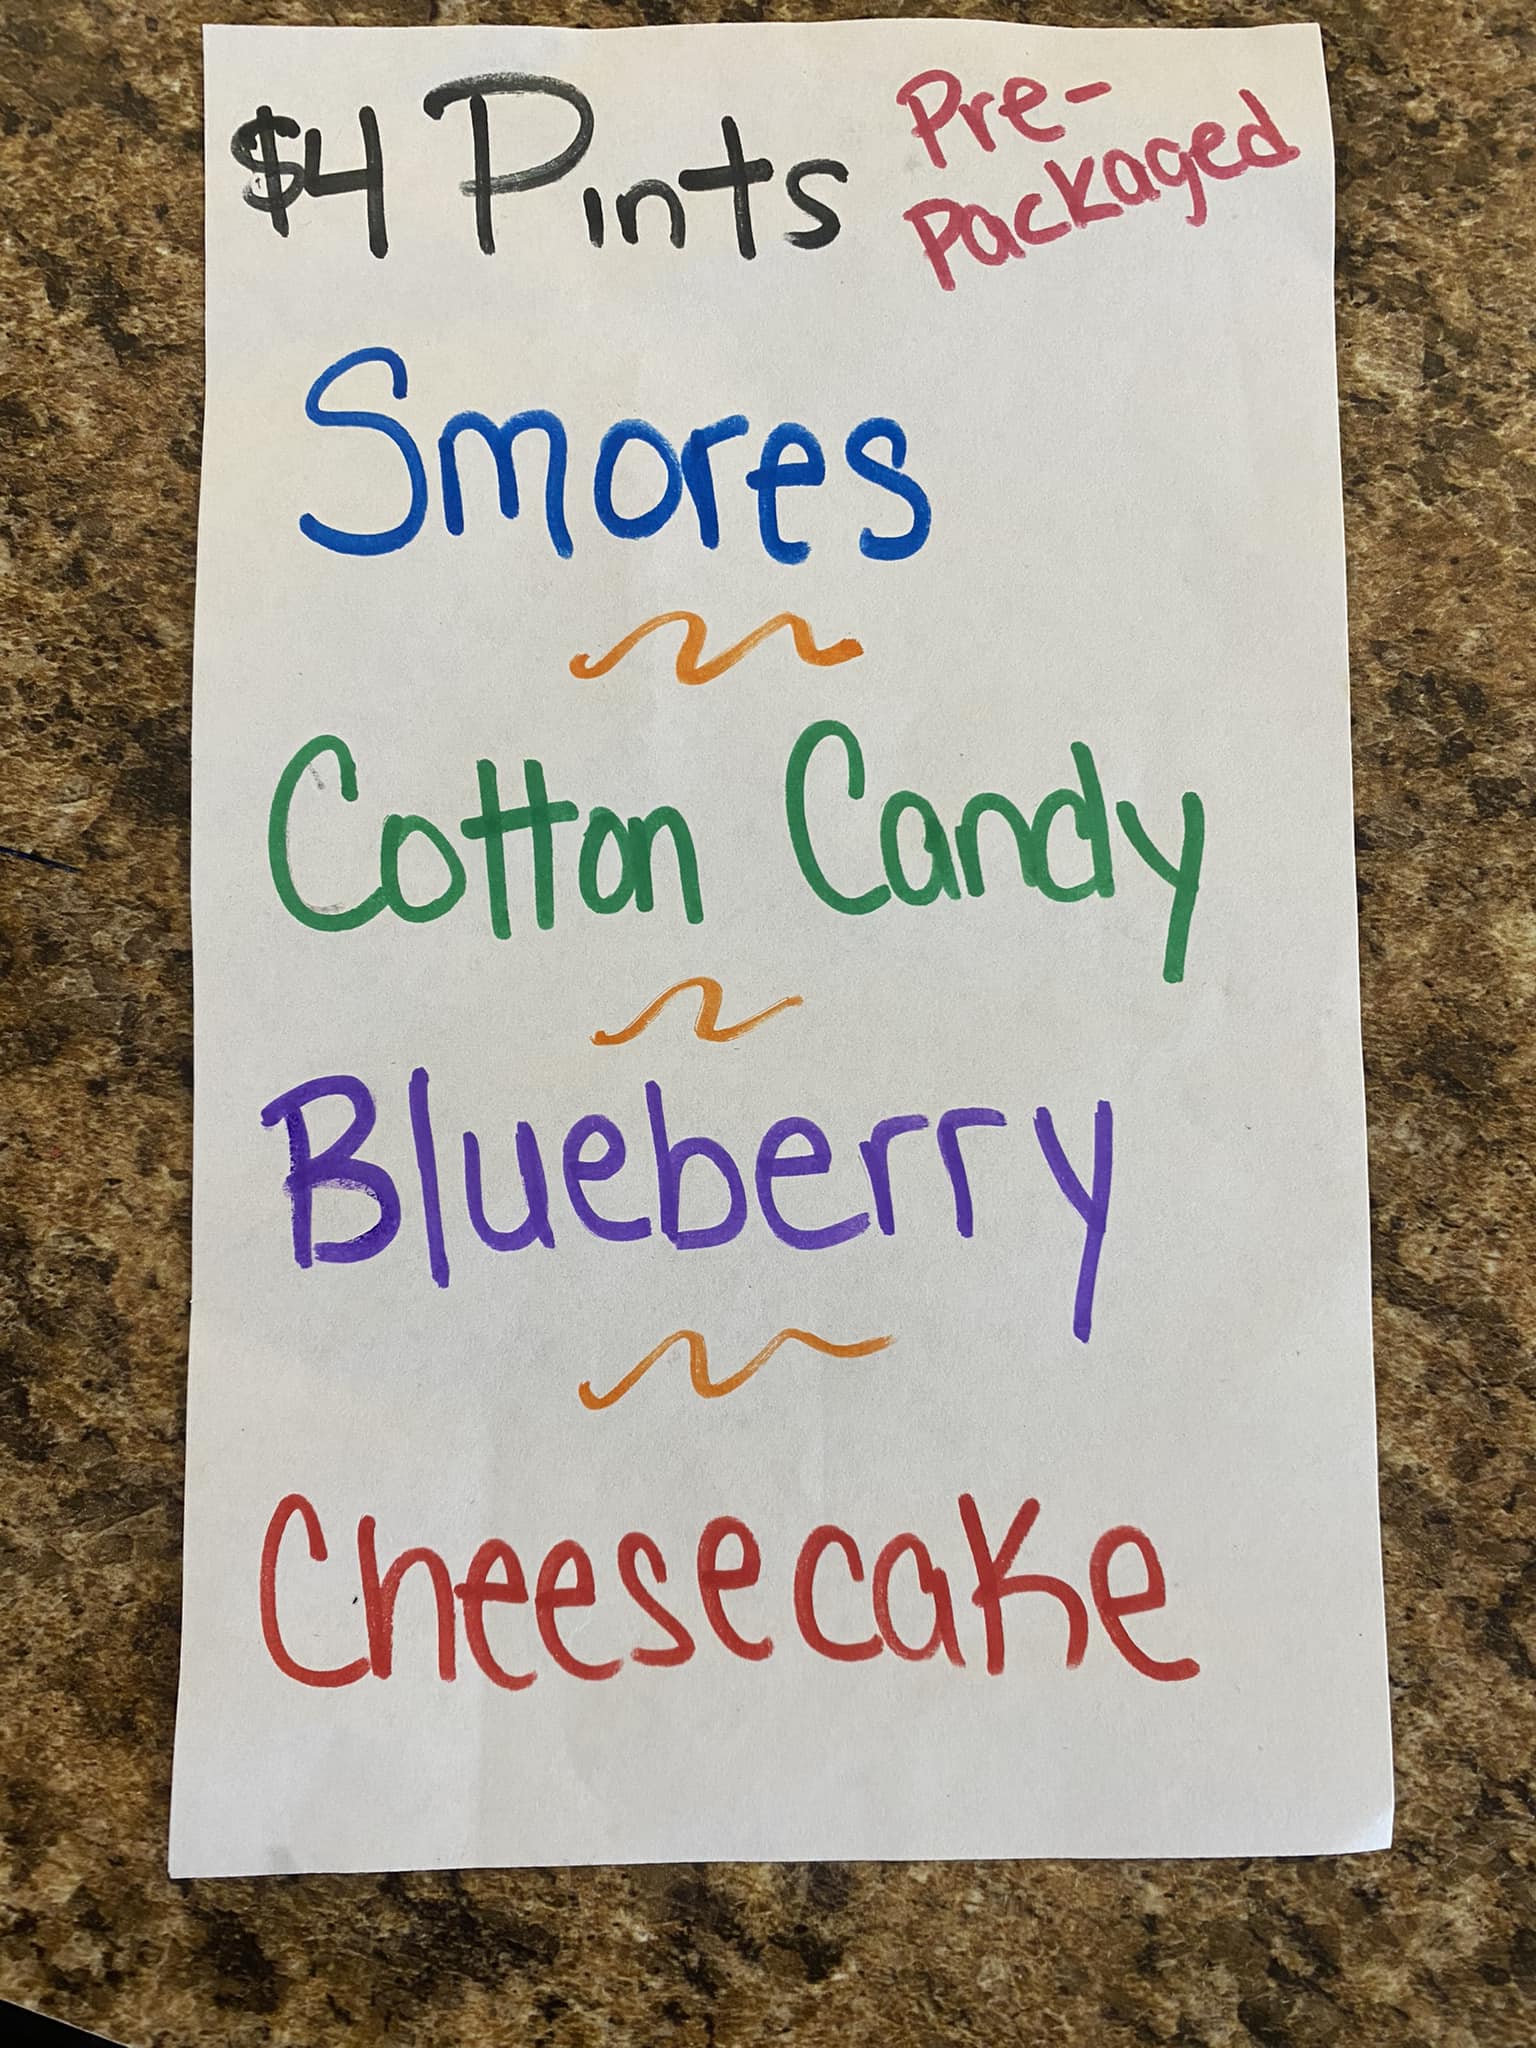 $4 Pints Pre-
Packaged
Smores
Cotton Candy
Blueberry
Cheesecake